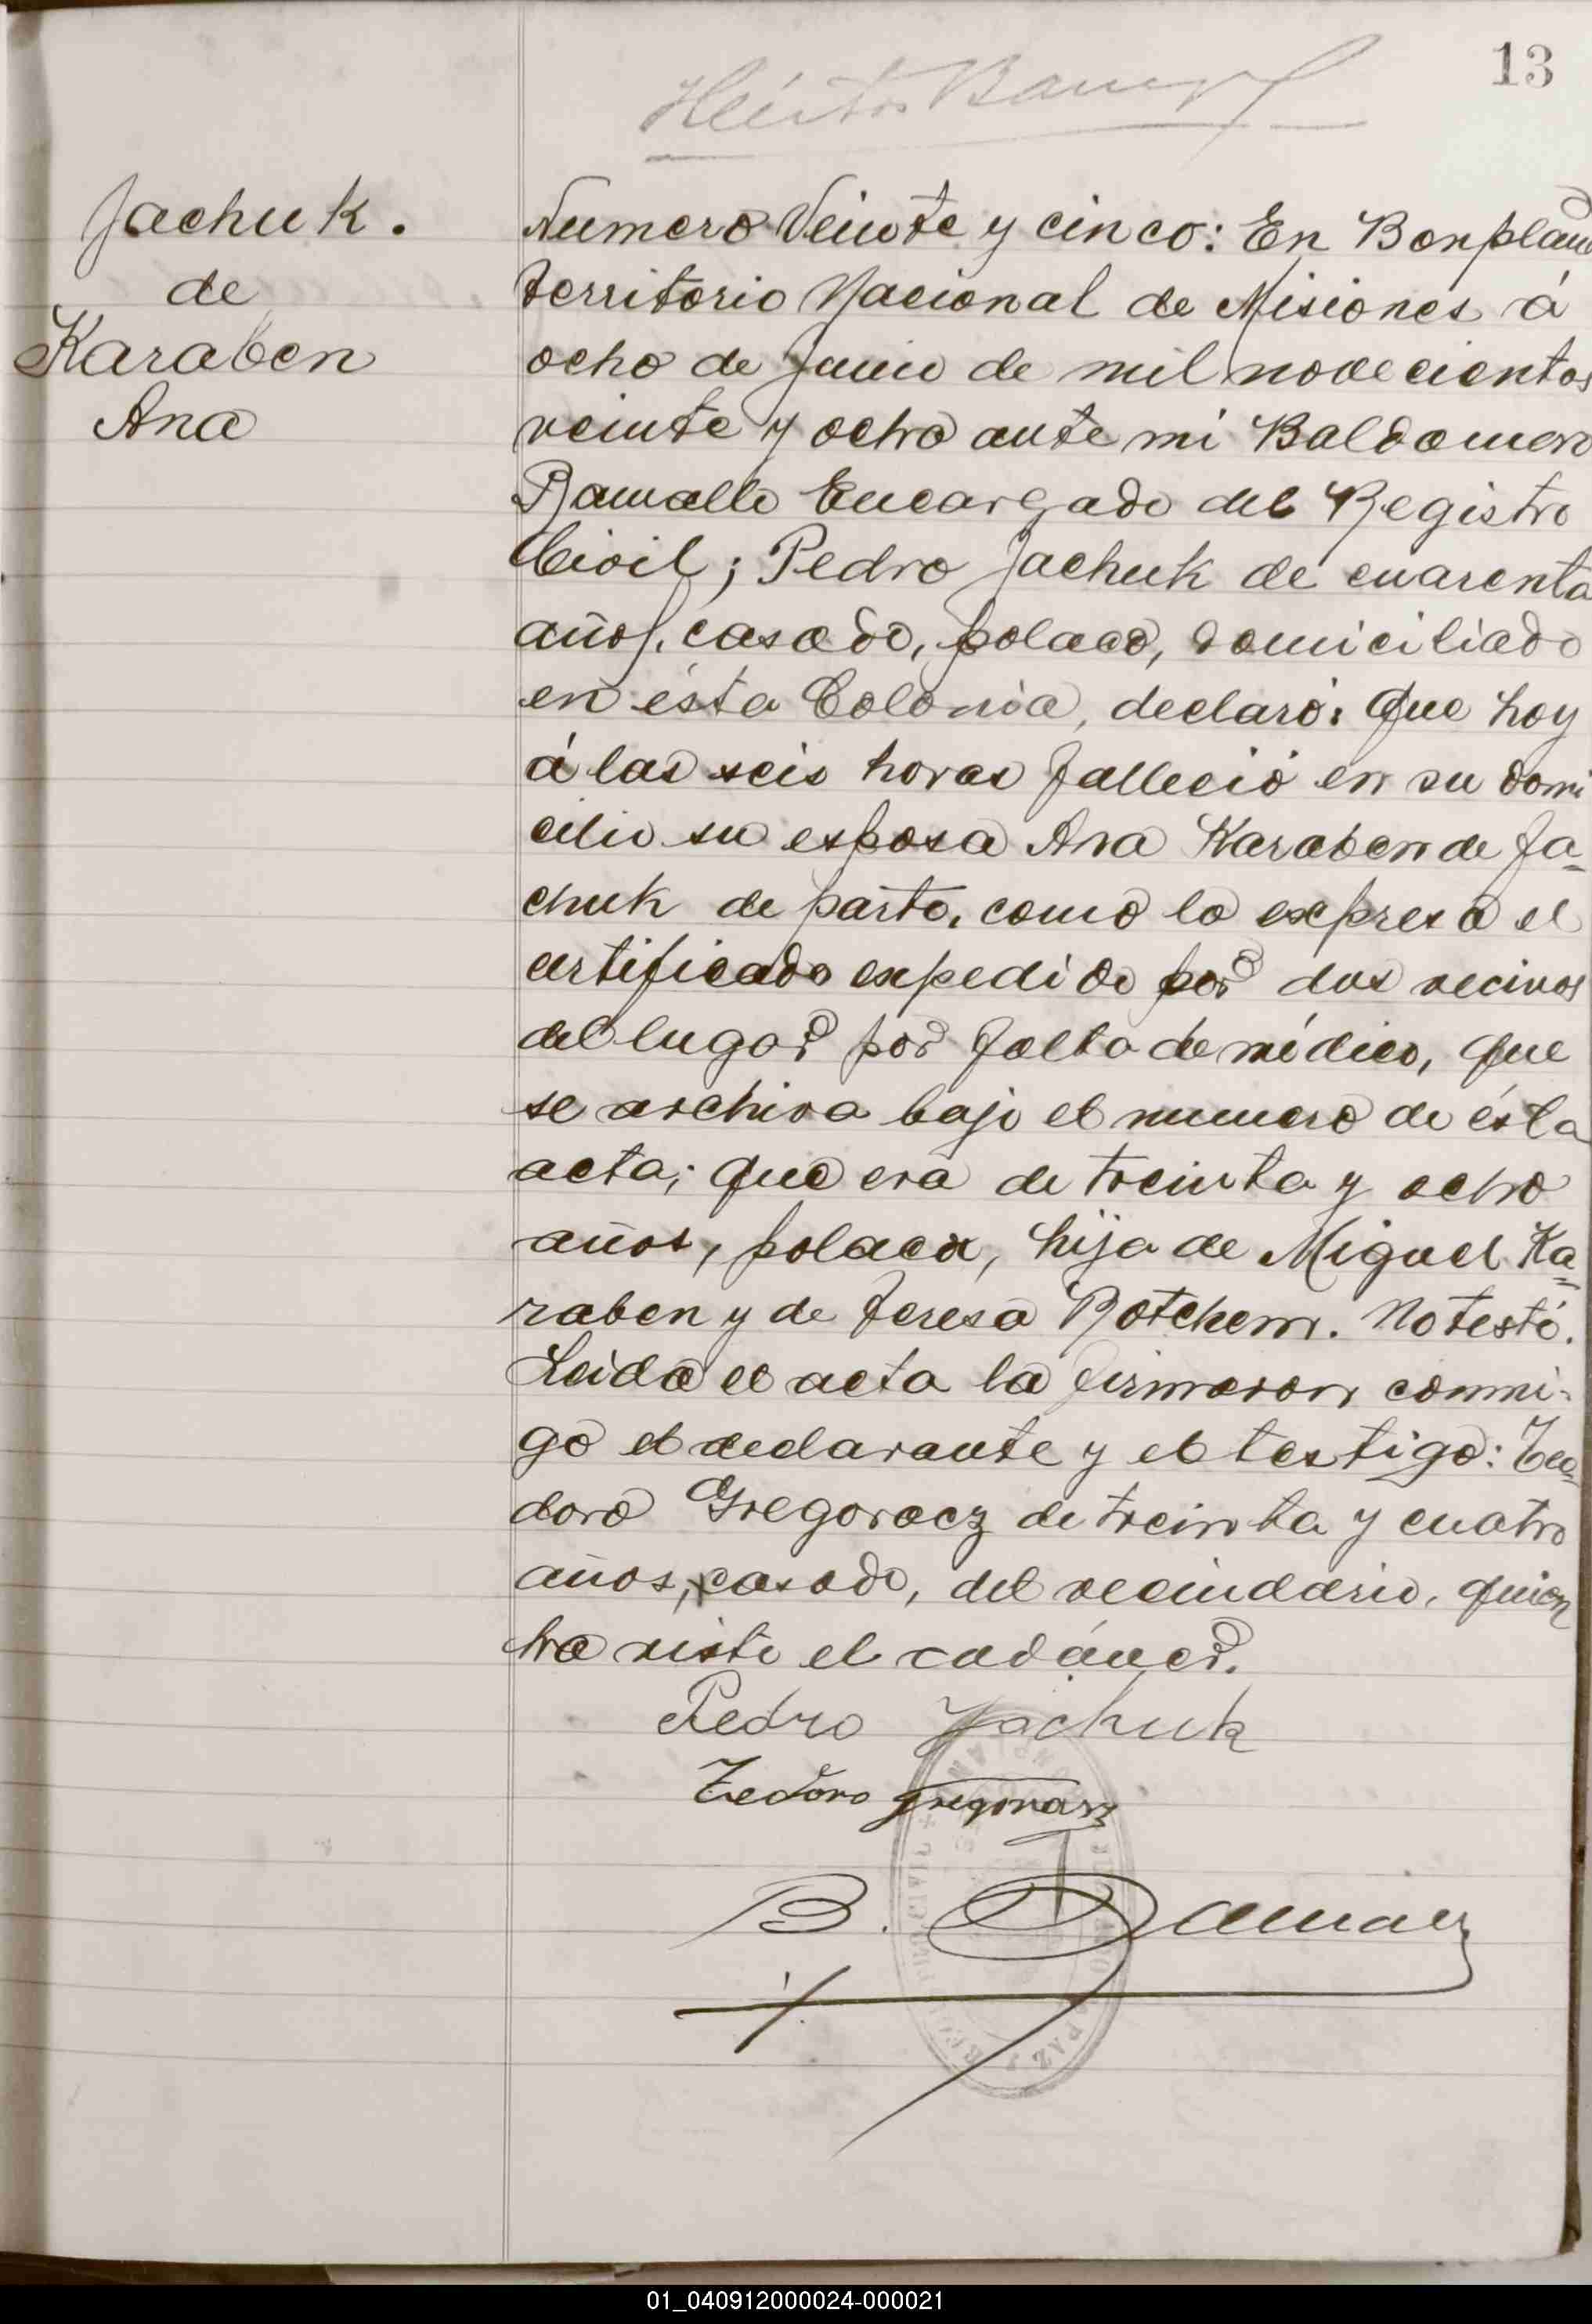 13
Héctor
Jachuk.
de
Karaben
Ana
Numero Veinte y cinco: En Bonpland
Territorio Nacional de Misiones á
ocho de Junio de mil novecientos
veinte y ocho ante mi Baldomero
Ramallo Encargado del Registro
Civil; Pedro Jachuk de cuarenta
años, casado, polaco, domiciliado
en ésta Colonia, declaró: Que hoy
á las seis horas falleció en su domi
cilio su esposa Ana Karaben de Ja-
chuk de parto, como lo expresa el
certificado expedido por dos vecinos
del lugar por falta de médico, que
se archiva bajo el numero de ésta
acta; que era de treinta y ocho
años, polaca, hija de Miguel Ka=
raben y de Teresa Rotchem. No testó.
Leida el acta la firmaron conmi-
go el declarante y el testigo: Teo=
doro Gregoracz de treinta y cuatro
años, casado, del vecindario, quien
ha visto el cadáver.
Pedro Jachuk
Teodoro Gregoracz
B.
PAZ
01_040912000024-000021